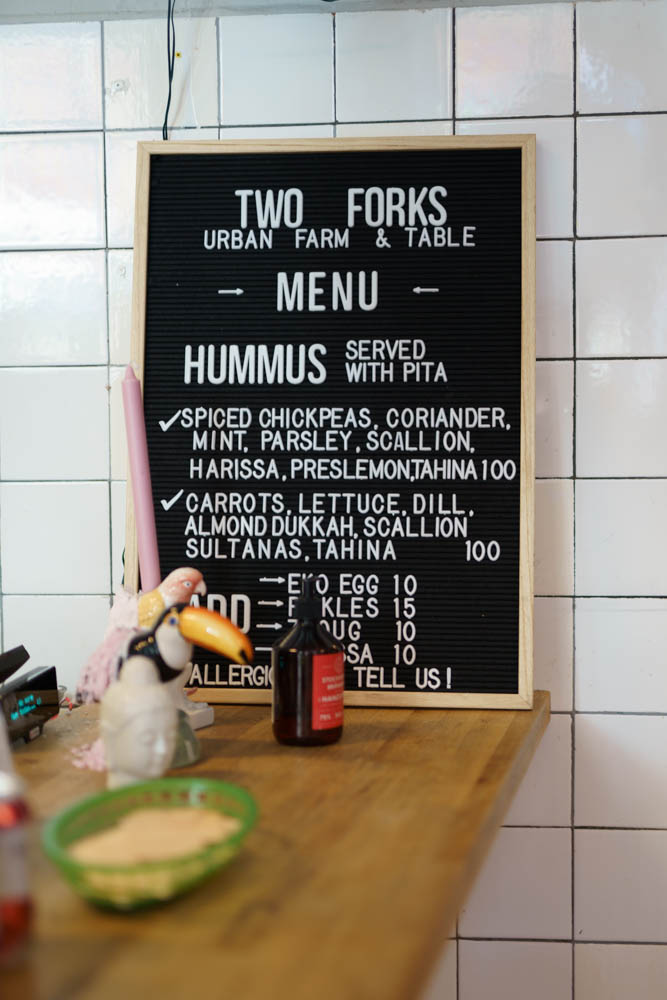 TWO FORKS
URBAN FARM & TABLE
→ MENU ←
HUMMUS SERVED
WITH PITA
✓ SPICED CHICKPEAS, CORIANDER,
MINT, PARSLEY, SCALLION,
HARISSA, PRESLEMON, TAHINA 100
✓ CARROTS, LETTUCE, DILL,
ALMOND DUKKAH, SCALLION
SULTANAS, TAHINA 100
ADD → EKO EGG 10
→ 15
→ 10
10
TELL US!